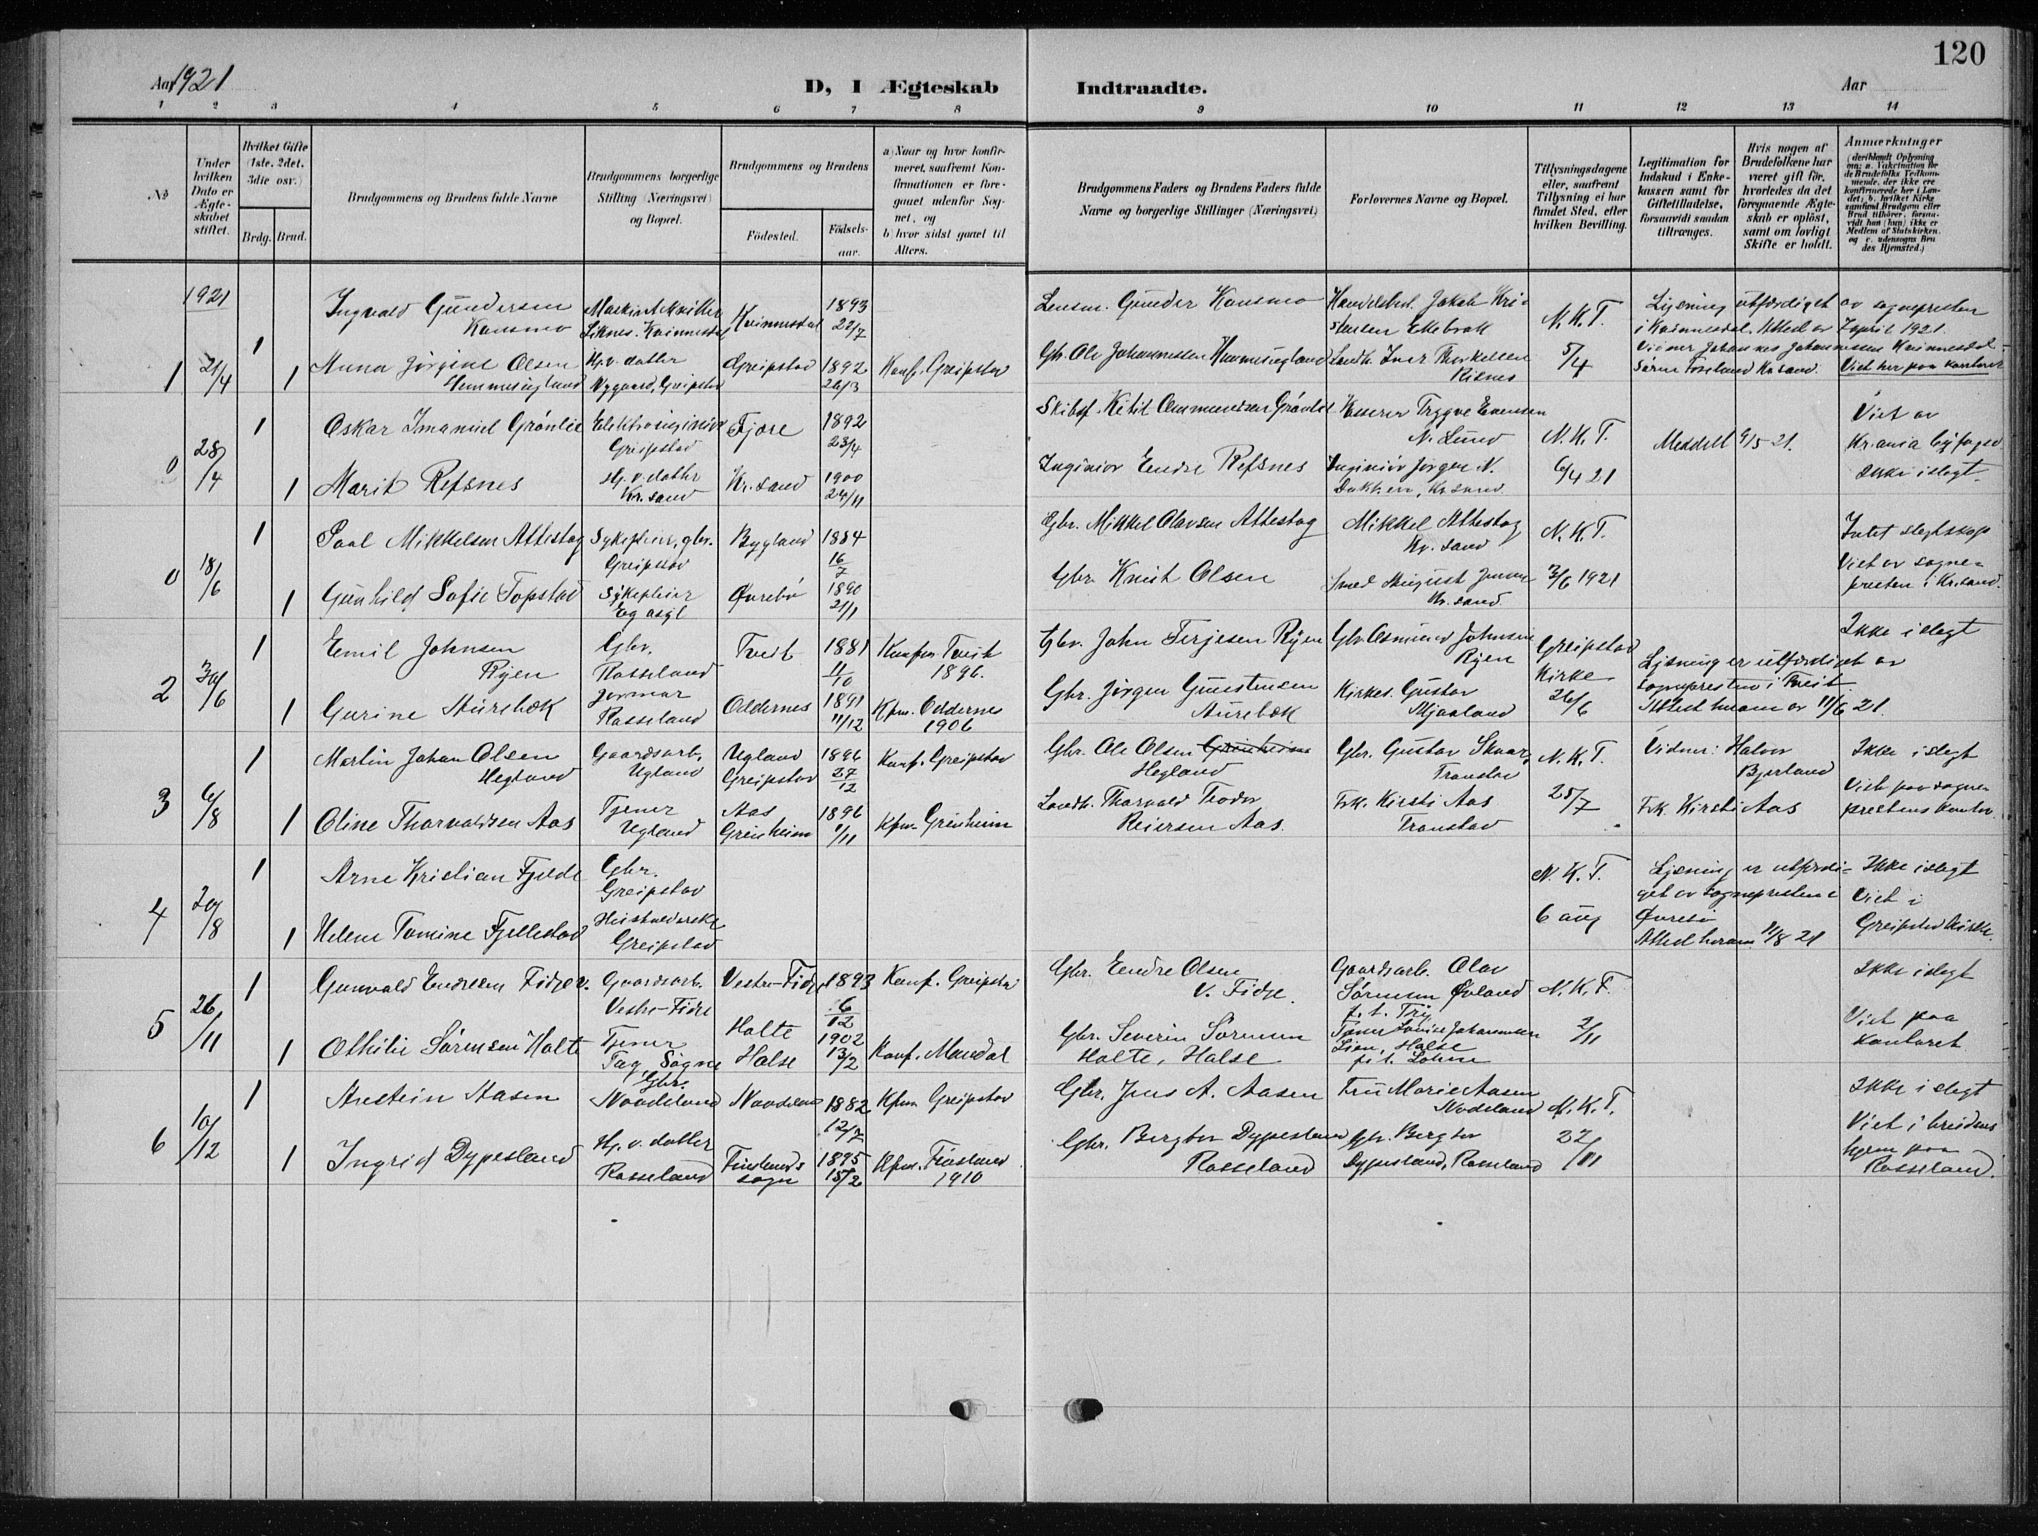 120
Aar 1921
D, I Ægteskab Indtraadte.
Aar
1 2 3 4 5 6 7 8 9 10 11 12 13 14
No
Under hvilken Dato er Ægteskabet stiftet.
Hvilket Gifte (1ste, 2det, 3die osv.)
Brdg. Brud.
Brudgommens og Brudens fulde Navne
Brudgommens borgerlige Stilling (Næringsvei) og Bopæl.
Brudgommens og Brudens
Fødested. Fødselsaar.
a) Naar og hvor konfirmeret, saafremt Konfirmationen er foregaaet udenfor Sognet, og
b) hvor sidst gaaet til Alters.
Brudgommens Faders og Brudens Faders fulde Navne og borgerlige Stillinger (Næringsvei)
Forlovernes Navne og Bopæl.
Tillysningsdagene eller, saafremt Tillysning ei har fundet Sted, efter hvilken Bevilling.
Legitimation for Indskud i Enkekassen samt for Giftetilladelse, forsaavidt saadan tiltrænges.
Hvis nogen af Brudefolkene har været gift før, hvorledes da det foregaaende Ægteskab er opløst, samt om lovligt Skifte er holdt.
Anmærkninger
1921
1 21/4
1 Ingvald Gundersen Kvinnesdal 1893 22/7
Lensm. Gunder
N.K.T.
Lysning utfærdiget av sognepresten
i Kvinnesdal. Attest av 7 april 1921.
1 Anna Jørgine Olsen
Hg. v. datter
Nygaard, Greipstad
Greipstad 1892 26/3 Konf. Greipstad
Gbr. Ole Johannessen
Risnes
5/4
Viet her paa kontoret
0 28/4
1 Oskar Imanuel Grønlie
Greipstad
Fjære 1892 23/4
N. Lund
N.K.T.
Meddelt 9/5 21.
Viet av
Kr.ania byfogd
1 Marit Refsnes
Hg. v. datter
Kr.sand
Kr.sand 1900 24/11
Ingeniør Endre Refsnes
Ingeniør Jørgen N.
Kr.sand
6/4 21
Ikke i slegt.
0 18/6
1 Paal Mikkelsen Attestog
Sykepleier, gbr.
Greipstad
Bygland 1884 16/7
Gbr. Mikkel Olavsen Attestog
Mikkel Attestog
Kr.sand
N.K.T.
Intet slegtskap
Viet av sognepresten i Kr.sand.
1 Gunhild Sofie Topstad
Sykepleier
Eg asyl
Øvrebø 1890 21/1
Gbr. Knut Olsen
Smed August
Kr.sand
3/6 1921
2 30/6
1 Emil Johnsen
Ryen
Gbr.
Rosseland
Tveit 1881 11/10
Konfm Tveit
1896.
Gbr. John Terjesen Ryen
Gbr. Osmund Johnsen
Ryen
Greipstad
Kirke
26/6
Lysning er utfærdiget av
sognepresten i Tveit.
Attest herom av 11/6 21.
Ikke i slegt
1 Gurine Aurebæk
Jormor
Rosseland
Oddernes 1891 11/12
Kfm. Oddernes
1906
Gbr. Jørgen Gunstensen
Aurebæk
Kirkes. Gustav
Mjaaland
3 6/8
1 Martin Johan Olsen
Hegland
Gaardsarb.
Ugland
Ugland
Greipstad
1896 27/12
Konf. Greipstad
Gbr. Ole Olsen Greinheim
Hegland
Gbr. Gustav Skaar,
Tronstad
N.K.T.
25/7
Vidner: Halvor
Bjerland
Frk. Kirsti Aas
Ikke i slegt
Viet paa sogneprestens kontor.
1 Oline Thorvaldsen Aas
Tjener
Ugland
Aas
Greinheim
1896 1/11
Kfm. Greinheim
Landh. Thorvald Teodor
Reiersen Aas.
Frk. Kirsti Aas
Tronstad
4 20/8
1 Arne Kristian Fjelde
Gbr.
Greipstad
N.K.T.
6 aug
Lysning er utfærdiget av sognepresten i
Øvrebø
Attest herom 11/8 21
Ikke i slegt
Viet i
Greipstad Kirke.
1 Helene Tomine Fjellestad
Husholderske
Greipstad
5 26/11
1 Gunvald Endresen Fidje v.
Gaardsarb.
Vestre-Fidje
Vestre-Fidje 1893 6/12
Konf. Greipstad
Gbr. Endre Olsen
V. Fidje.
Gaardsarb. Olav
Sørensen Øvland
p. t. Try
N.K.T.
2/11
Ikke i slegt
Viet paa
kontoret.
1 Othilie Sørensen Holte
Tjener
Tag, Søgne
Holte
Halse
1902 13/2
Konf. Mandal
Gbr. Severin Sørensen
Holte, Halse
Tjener Louise Johannessen
Lien, Halse
p. t. Lohne
6 10/12
1 Arestein Aasen
Gbr.
Nodeland
Nodeland 1882 12/7
Kfm. Greipstad
Gbr. Jens A. Aasen
Fru Marie Aasen
Nodeland
N.K.T.
22/11
Ikke i slegt
Viet i brudens
hjem paa
Rosseland.
1 Ingrid Dypesland
Hg. v. datter
Rosseland
Finslands
sogn
1895 15/2
Kfm. Finsland
1910
Gbr. Bergtor Dypesland
Rosseland
Gbr. Bergtor
Dypesland, Rosseland